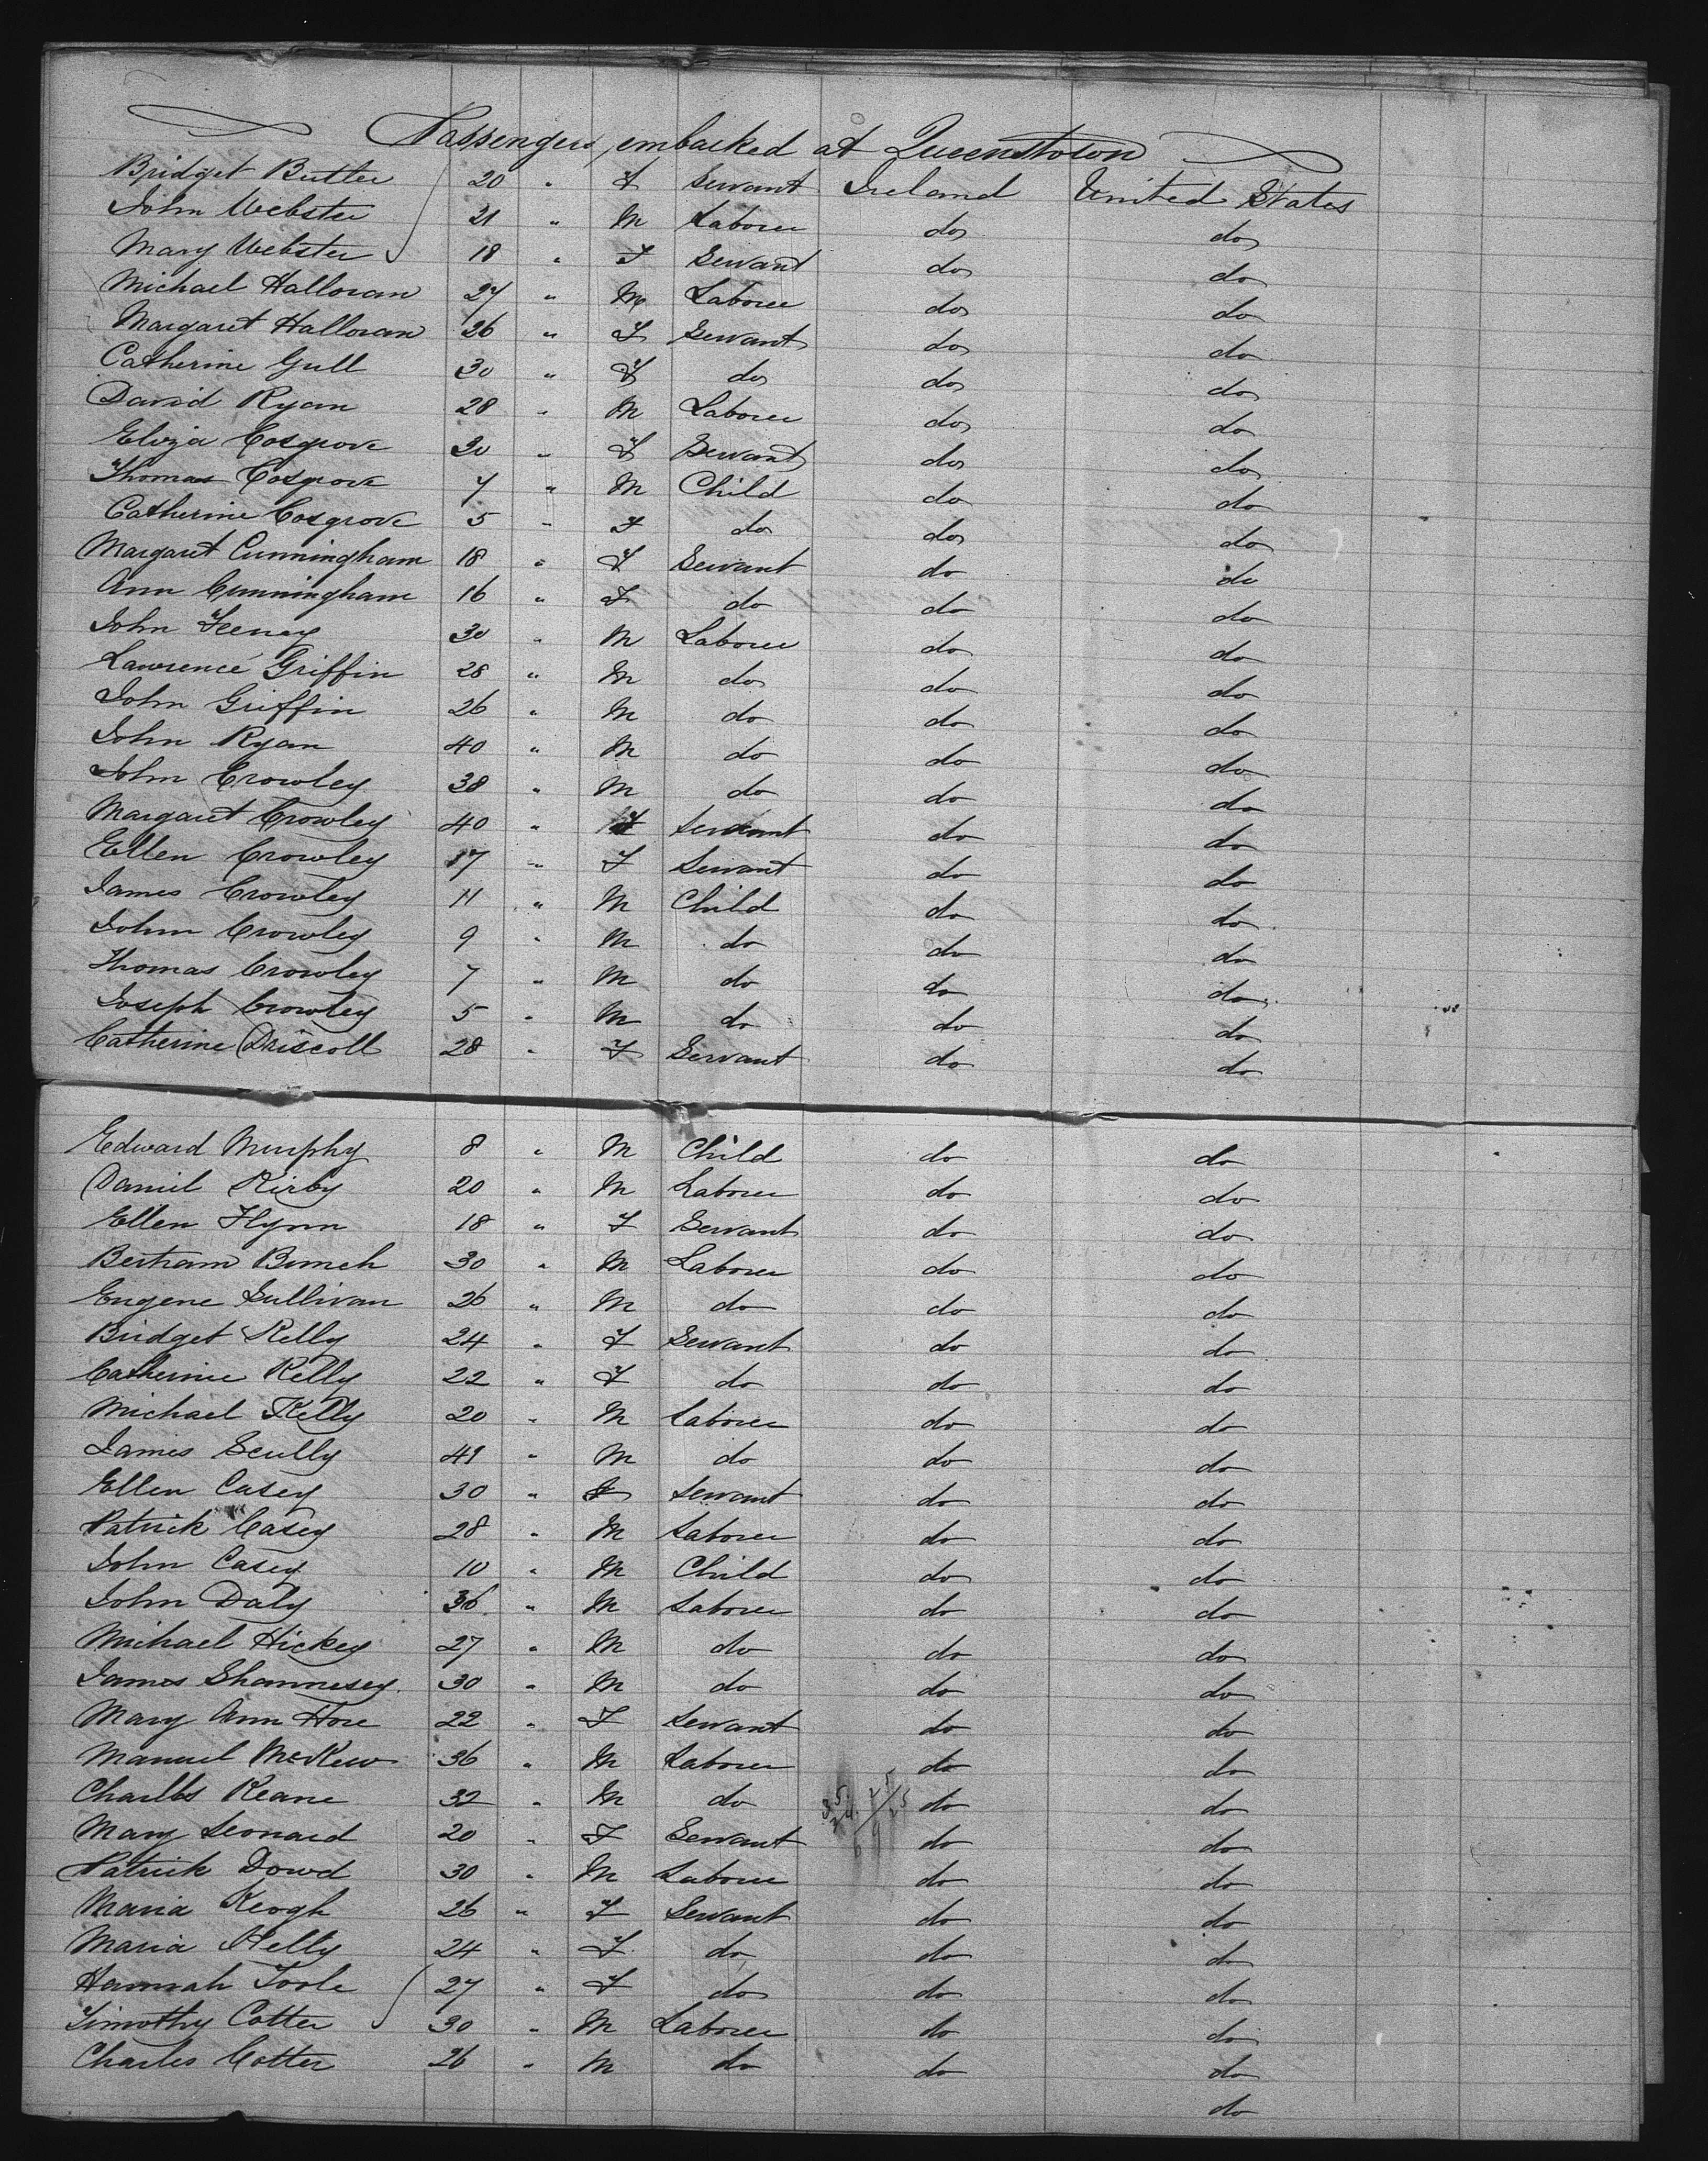 Passengers embarked at Queenstown
Bridget Butler 20 " F Servant Ireland United States
John Webster 21 " M Laborer do do
Mary Webster 18 " F Servant do do
Michael Halloran 27 " M Laborer do do
Margaret Halloran 26 " F Servant do do
Catherine Gull 30 " F do do do
David Ryan 28 " M Laborer do do
Eliza Cosgrove 30 " F Servant do do
Thomas Cosgrove 7 " M Child do do
Catherine Cosgrove 5 " F do do do
Margaret Cunningham 18 " F Servant do do
Ann Cunningham 16 " F do do do
John Feeney 30 " M Laborer do do
Lawrence Griffin 28 " M do do do
John Griffin 26 " M do do do
John Ryan 40 " M do do do
John Crowley 38 " M do do do
Margaret Crowley 40 " F Servant do do
Ellen Crowley 17 " F Servant do do
James Crowley 11 " M Child do do
John Crowley 9 " M do do do
Thomas Crowley 7 " M do do do
Joseph Crowley 5 " M do do do
Catherine Driscoll 28 " F Servant do do
Edward Murphy 8 " M Child do do
Daniel Kirby 20 " M Laborer do do
Ellen Flynn 18 " F Servant do do
Bertram Bunch 30 " M Laborer do do
Eugene Sullivan 26 " M do do do
Bridget Kelly 24 " F Servant do do
Catherine Kelly 22 " F do do do
Michael Kelly 20 " M Laborer do do
James Scully 41 " M do do do
Ellen Casey 30 " F Servant do do
Patrick Casey 28 " M Laborer do do
John Casey 10 " M Child do do
John Daly 36 " M Laborer do do
Michael Hickey 27 " M do do do
James Shannesey 30 " M do do do
Mary Ann Hore 22 " F Servant do do
Manuel McKew 36 " M Laborer do do
Charlbs Keane 32 " M do do do
Mary Leonard 20 " F Servant do do
Patrick Dowd 30 " M Laborer do do
Maria Keogh 26 " F Servant do do
Maria Kelly 24 " F do do do
Hannah Toole 27 " F do do do
Timothy Cotter 30 " M Laborer do do
Charles Cotter 26 " M do do do
do